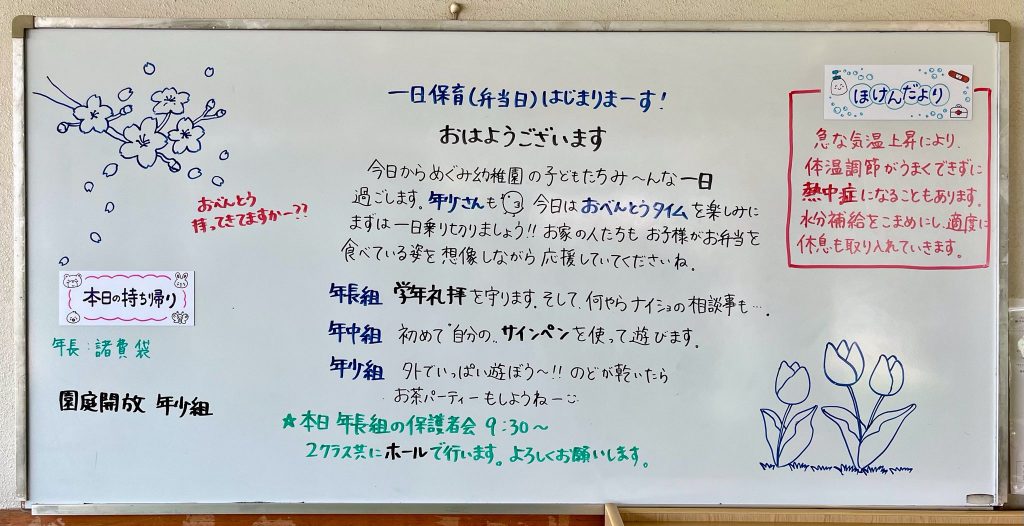 一日保育(弁当日)はじまりまーす!
おはようございます
今日からめぐみ幼稚園の子どもたちみ〜んな一日
過ごします。年少さんも 今日はおべんとうタイムを楽しみに
まずは一日乗り切りましょう!!お家の人たちも お子様がお弁当を
食べている姿を想像しながら応援していてくださいね。
年長組 学年礼拝を守ります。そして、何やらナイショの相談事も…。
年中組 初めて"自分の"サインペンを使って遊びます。
年少組 外でいっぱい遊ぼう〜!!のどが乾いたら
お茶パーティーもしようねー
☆本日 年長組の保護者会 9:30〜
2クラス共にホールで行います。よろしくお願いします。
おべんとう
持ってきてますかー??
本日の持ち帰り
年長:諸費袋
園庭開放 年少組
ほけんだより
急な気温上昇により、
体温調節がうまくできずに
熱中症になることもあります。
水分補給をこまめにし、適度に
休息も取り入れていきます。